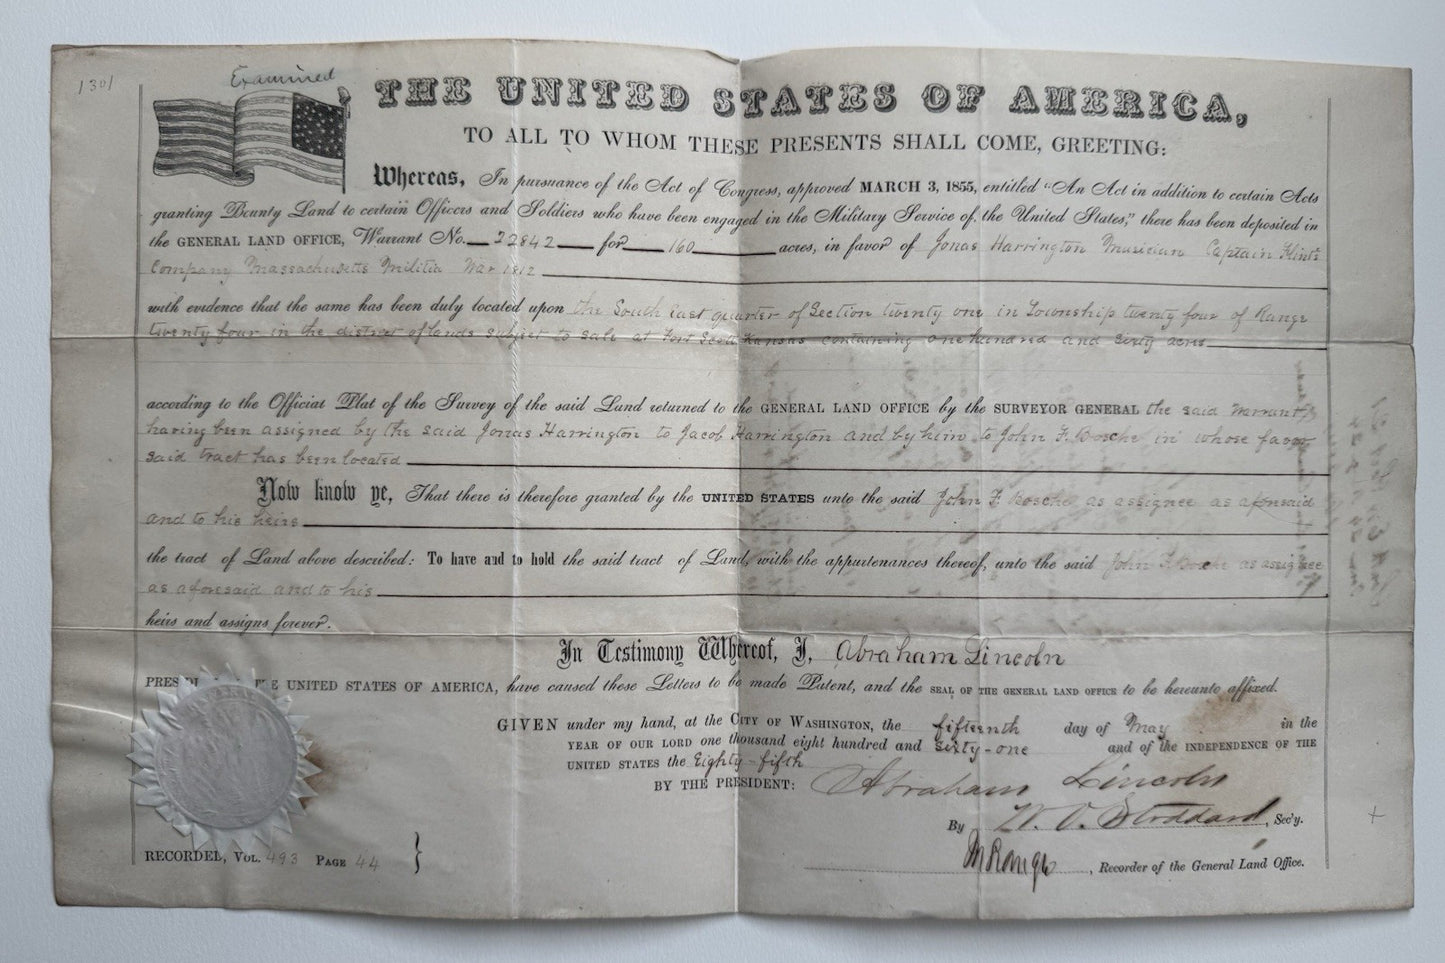 1301
Examined
THE UNITED STATES OF AMERICA,
TO ALL TO WHOM THESE PRESENTS SHALL COME, GREETING:
Whereas, In pursuance of the Act of Congress, approved MARCH 3, 1855, entitled "An Act in addition to certain Acts
granting Bounty Land to certain Officers and Soldiers who have been engaged in the Military Service of the United States," there has been deposited in
the GENERAL LAND OFFICE, Warrant No. 22842 for 160 acres, in favor of Jonas Harrington Musician Captain Flint's
Company Massachusetts Militia War 1812
with evidence that the same has been duly located upon the South East quarter of Section twenty one in Township twenty four of Range
twenty four in the district of lands subject to sale at Fort Scott Kansas containing one hundred and sixty acres
according to the Official Plat of the Survey of the said Land returned to the GENERAL LAND OFFICE by the SURVEYOR GENERAL the said Warrant
having been assigned by the said Jonas Harrington to Jacob Harrington and by him to John F. Bosche in whose favor
said tract has been located
Now know ye, That there is therefore granted by the UNITED STATES unto the said John F Bosche as assignee as aforesaid
and to his heirs
the tract of Land above described: To have and to hold the said tract of Land, with the appurtenances thereof, unto the said John F. Bosche as assignee
as aforesaid and to his
heirs and assigns forever.
In Testimony Whereof, I, Abraham Lincoln
PRESIDENT OF THE UNITED STATES OF AMERICA, have caused these Letters to be made Patent, and the SEAL OF THE GENERAL LAND OFFICE to be hereunto affixed.
GIVEN under my hand, at the CITY OF WASHINGTON, the fifteenth day of May in the
YEAR OF OUR LORD one thousand eight hundred and sixty-one and of the INDEPENDENCE OF THE
UNITED STATES the Eighty-fifth
BY THE PRESIDENT: Abraham Lincoln
By W. O. Stoddard, Sec'y.
RECORDED, VOL. 493 PAGE 44 }
, Recorder of the General Land Office.